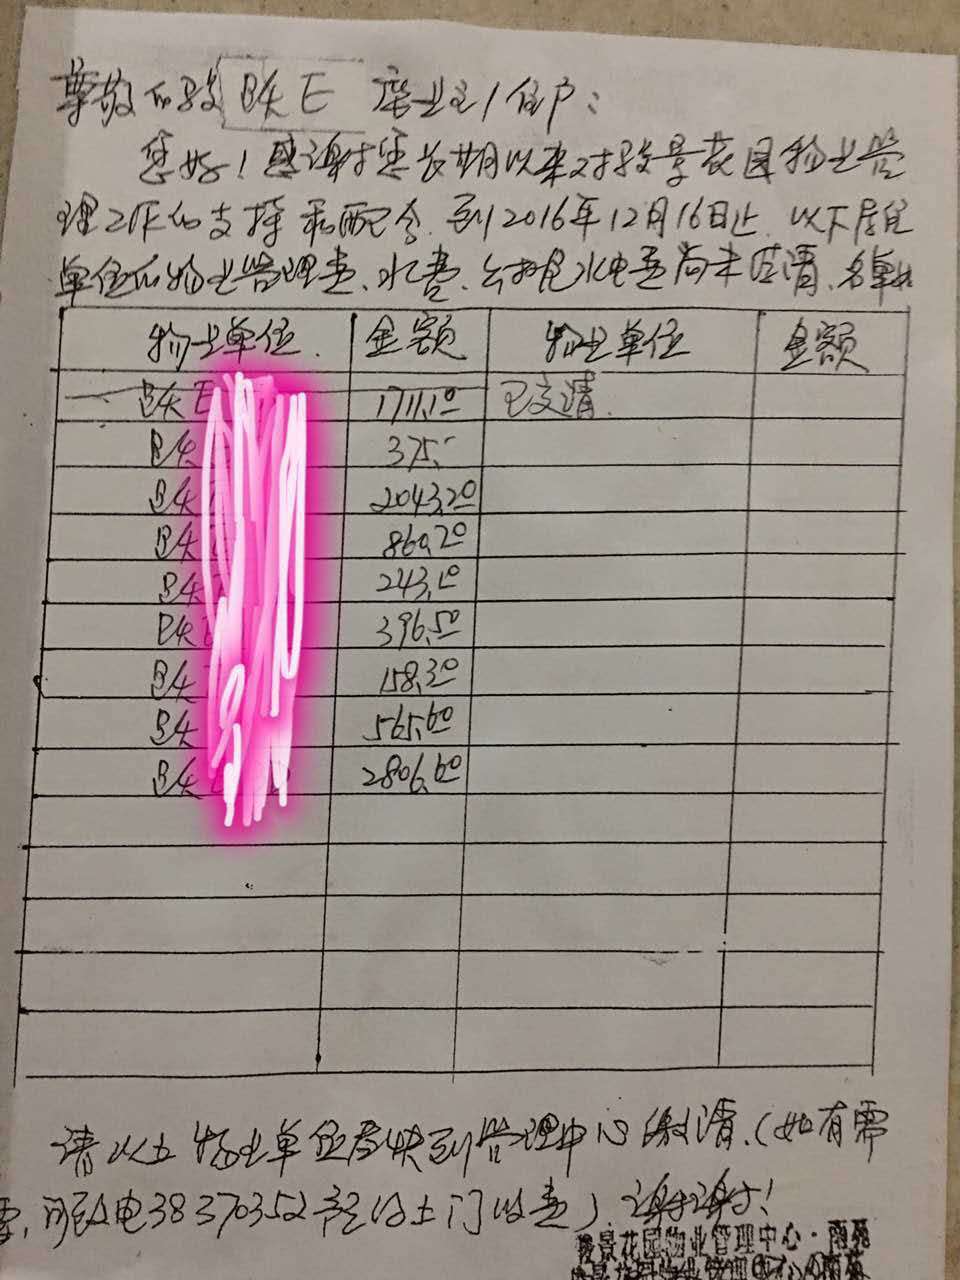 尊敬的骏B4栋E座业主/住户：
您好！感谢您长期以来对骏景花园物业管
理工作的支持和配合，到2016年12月16日止，以下居住
单位的物业管理费、水费、公摊水电费尚未结清，名单
物业单位 金额 物业单位 金额
E 1711.10 已交清
375.-
2043.20
860.20
243.10
396.50
158.30
565.60
2806.60
请以上物业单位尽快到管理中心缴清，（如有需
要，可致电38370352 上门收费）谢谢！
骏景花园物业管理中心·雨苑